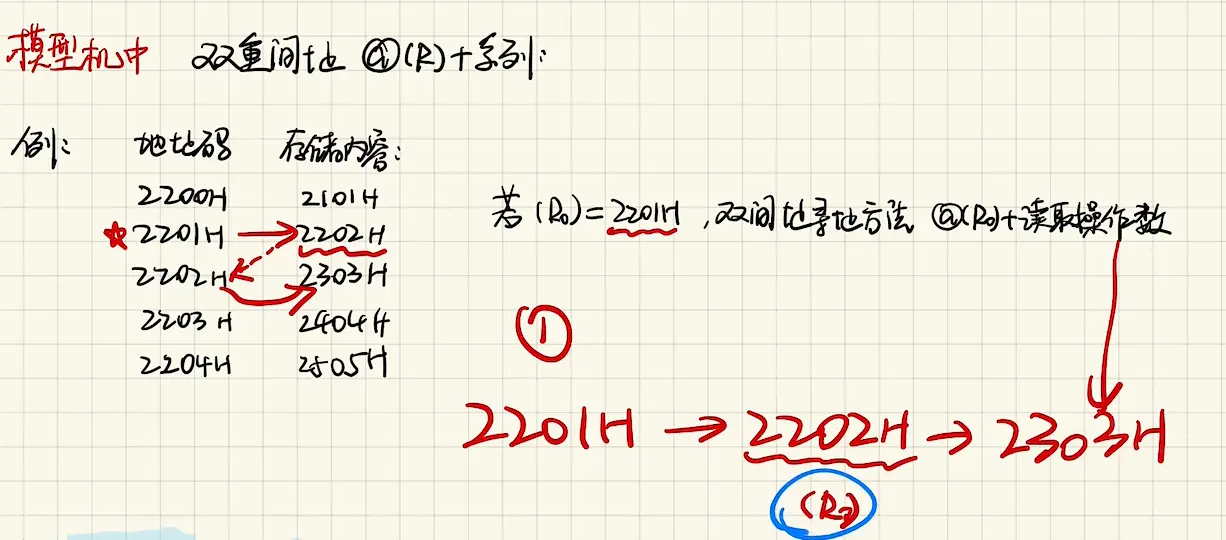 模型机中 双重间址 @(R)+系列:
例: 地址码 存储内容:
2200H 2101H
2201H 2202H
2202H 2303H
2203H 2404H
2204H 2505H
若(R₀)=2201H,双间址寻址方法 @(R₀)+读取操作数
①
2201H → 2202H → 2303H